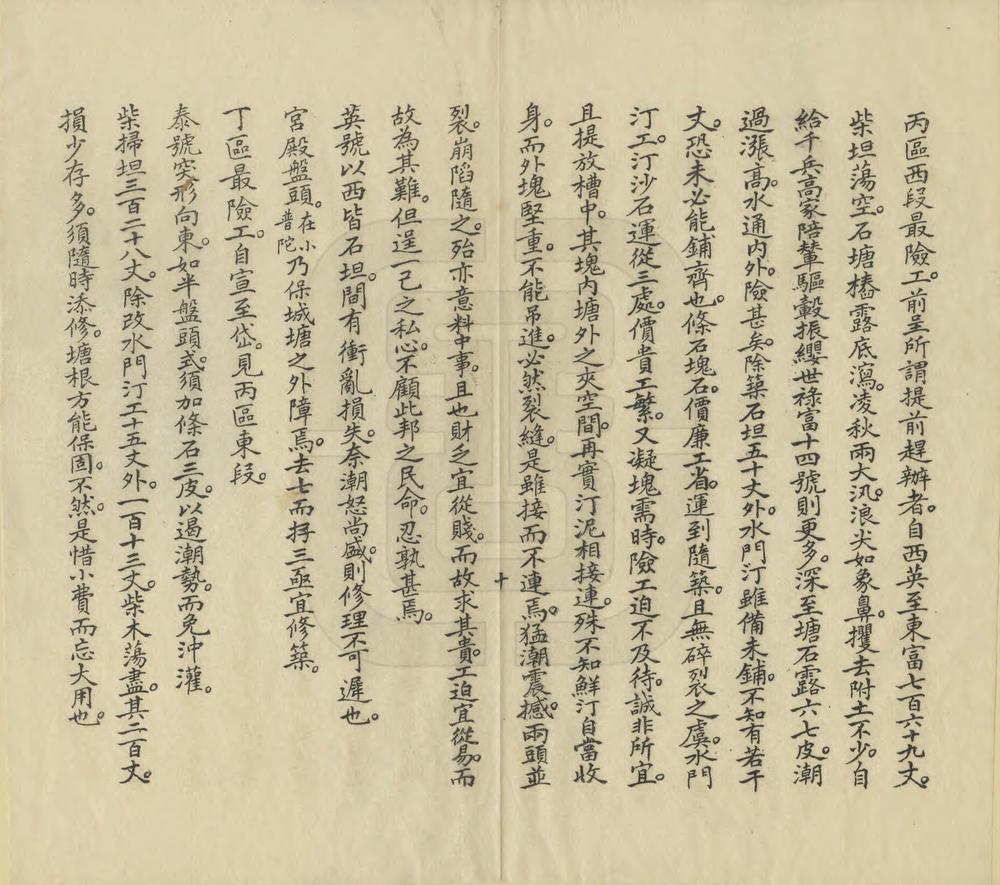 丙區西段最險工。前呈所謂提前趕辦者。自西英至東富七百六十九丈。
柴坦蕩空。石塘樁露底瀉。凌秋兩大汛。浪尖如象鼻。攫去附土不少。自
給千兵高家陪輦驅轂振纓世祿富十四號則更多。深至塘石露六七皮。潮
過漲高。水通內外。險甚矣。除築石坦五十丈外。水門汀雖備未鋪。不知有若干
丈。恐未必能鋪齊也。條石塊石。價廉工省。運到隨築。且無碎裂之虞。水門
汀工。汀沙石運從三處。價貴工繁。又凝塊需時。險工迫不及待。誠非所宜。
且提放槽中。其塊內塘外之夾空間。再實汀泥相接連。殊不知鮮汀自當收
身。而外塊堅重。不能吊進。必然裂縫。是雖接而不連焉。猛潮震撼。兩頭並
十
裂。崩陷隨之。殆亦意料中事。且也財乏宜從賤。而故求其貴。工迫宜從易。而
故為其難。但逞一己之私心。不顧此邦之民命。忍孰甚焉。
英號以西皆石坦。間有衝亂損失。奈潮怒尚盛。則修理不可遲也。
宮殿盤頭。在小普陀乃保城塘之外障焉。去七而存三。亟宜修築。
丁區最險工。自宣至岱。見丙區東段。
泰號突形向東。如半盤頭式。須加條石三皮。以遏潮勢。而免沖灌。
柴掃坦三百二十八丈。除改水門汀工十五丈外。一百十三丈。柴木蕩盡。其二百丈。
損少存多。須隨時添修。塘根方能保固。不然。是惜小費而忘大用也。